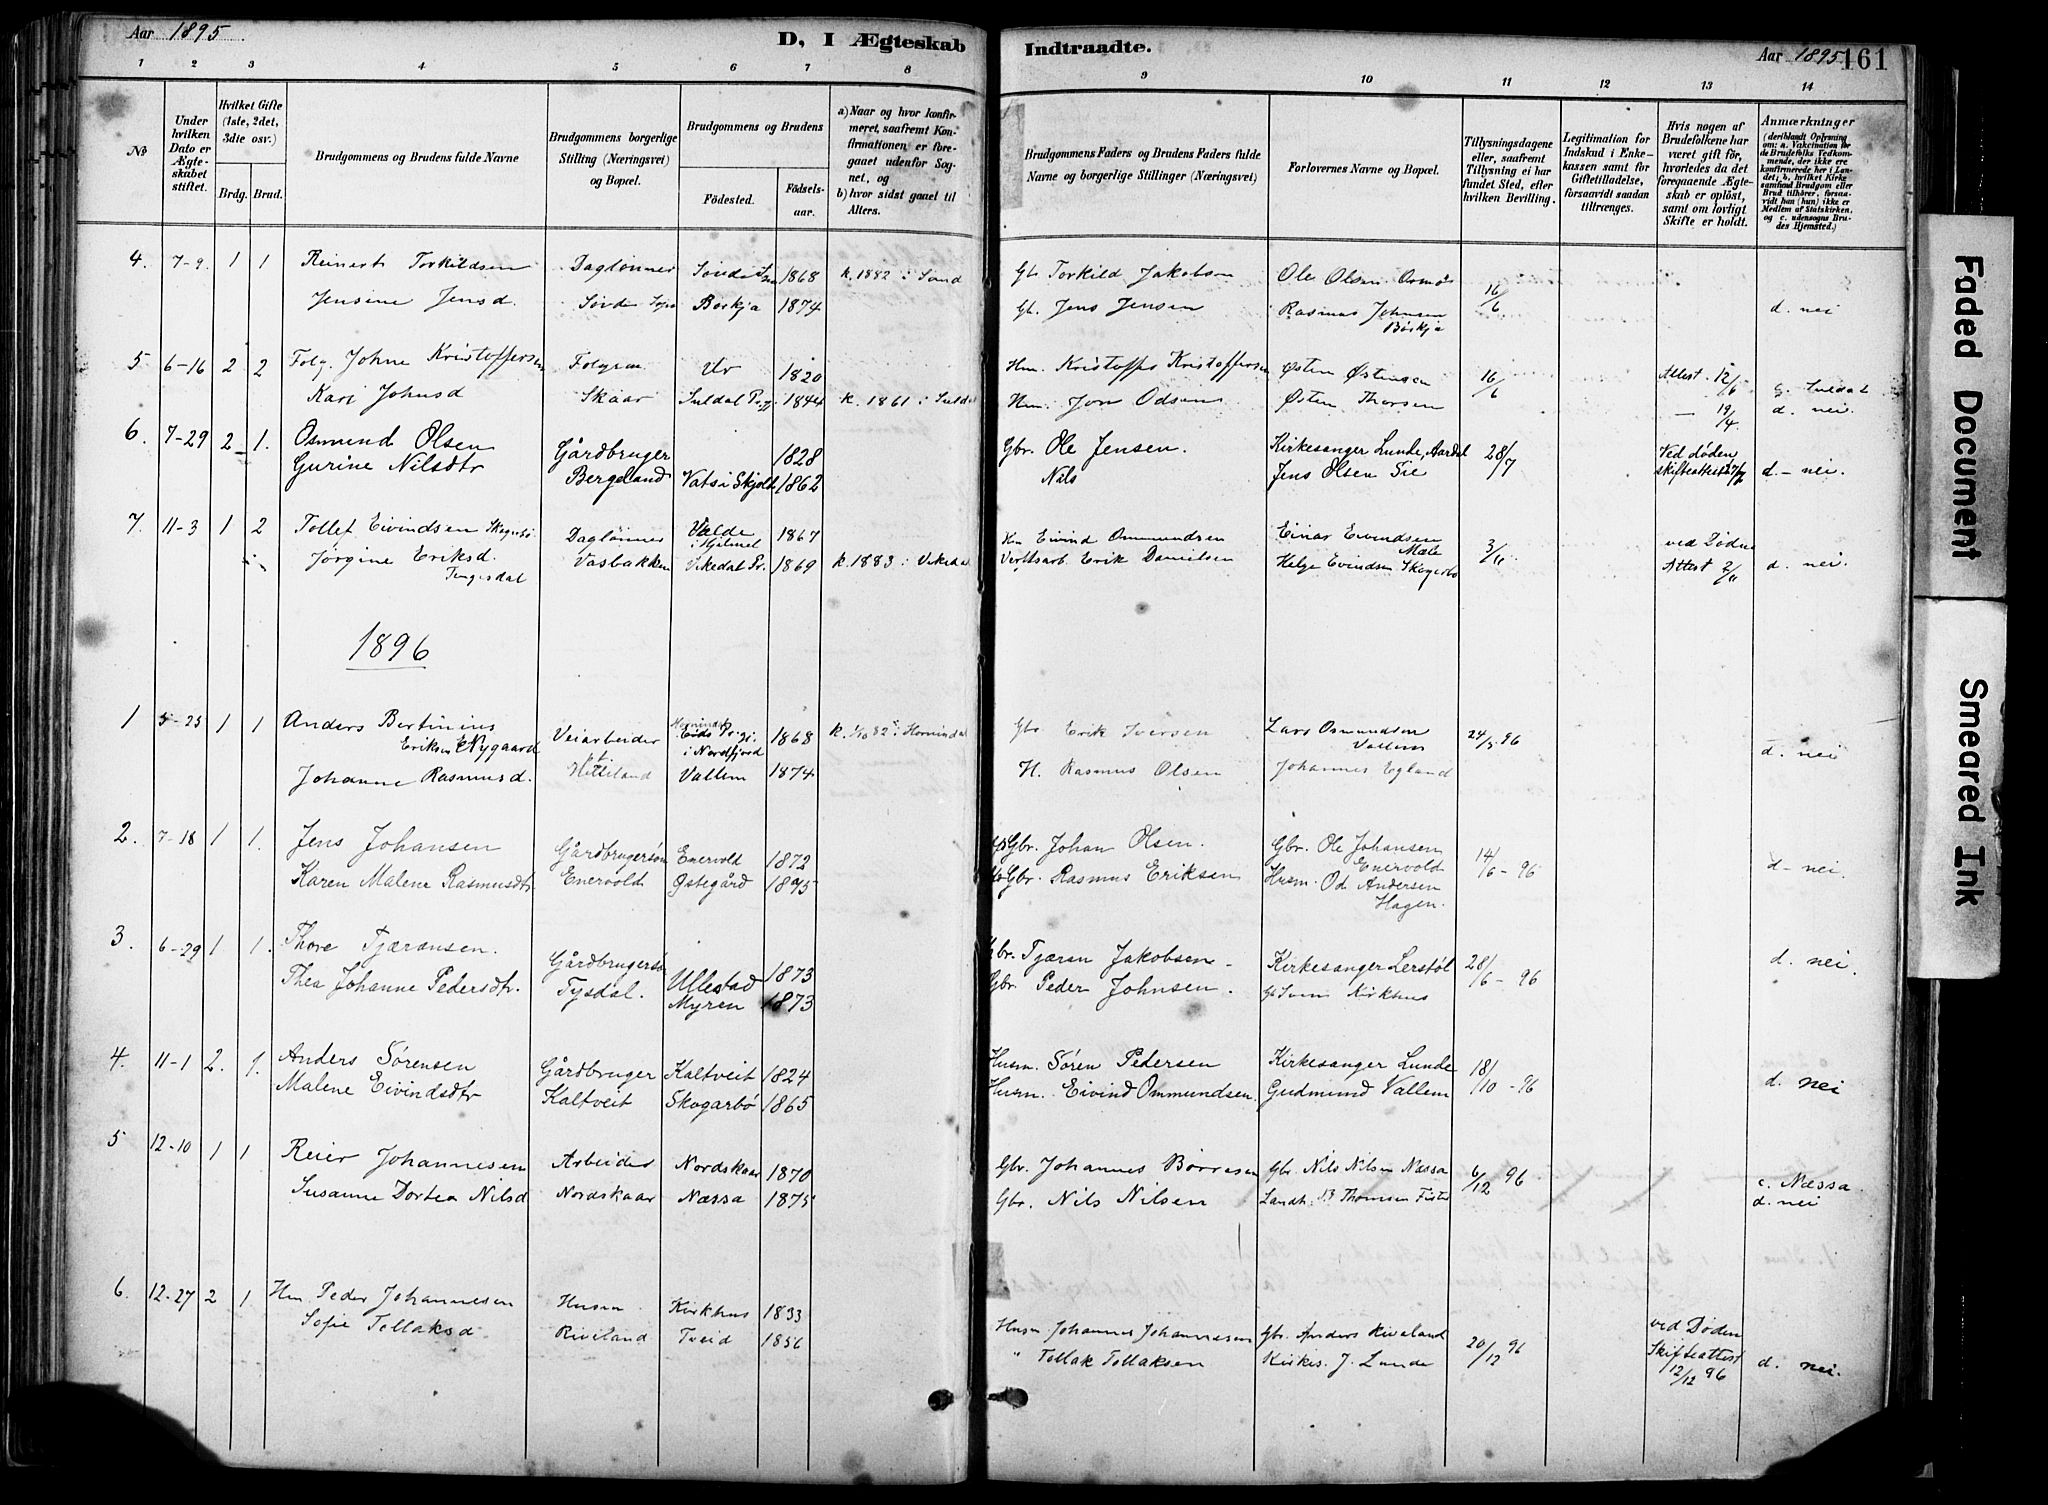 Aar 1895
D, I Ægteskab
Indtraadte.
Aar 1895
161
1 2 3 4 5 6 7 8 9 10 11 12 13 14
No
Under hvilken Dato er Ægteskabet stiftet.
Hvilket Gifte (1ste, 2det, 3die osv.)
Brdg. Brud.
Brudgommens og Brudens fulde Navne
Brudgommens borgerlige Stilling (Næringsvei) og Bopæl.
Brudgommens og Brudens
Fødested.
Fødselsaar.
a) Naar og hvor konfirmeret, saafremt Konfirmationen er foregaaet udenfor Sognet, og
b) hvor sidst gaaet til Alters.
Brudgommens Faders og Brudens Faders fulde Navne og borgerlige Stillinger (Næringsvei)
Forlovernes Navne og Bopæl.
Tillysningsdagene eller, saafremt Tillysning ei har fundet Sted, efter hvilken Bevilling.
Legitimation for Indskud i Enkekassen samt for Giftetilladelse, forsaavidt saadan tiltrænges.
Hvis nogen af Brudefolkene har været gift før, hvorledes da det foregaaende Ægteskab er opløst, samt om lovligt Skifte er holdt.
Anmærkninger
(deriblandt Oplysning om: a. Vakcination for de Brudefolks Vedkommende, der ikke ere konfirmerede her i Landet; b. hvilket Kirkesamfund Brudgom eller Brud tilhører, forsaavidt han (hun) ikke er Medlem af Statskirken, og c. udensogns Brudes Hjemsted.)
4. 7-9 1 1 Reinert Torkildsen Daglønner Sønde 1868 k. 1882 i Sønd Gb Torkild Jakobsen Ole Olsen Osmo 16/6
Jensine Jensd. Sønde Borkja 1874 Gb. Jens Jensen Rasmus Johnsen Børkja d. nei
5 6-16 2 2 Folg. Johne Kristoffersen Folgman Ur 1820 Hm. Kristoffer Kristoffersen Østen Østensen 16/6 Attest 12/6 Suldal
Kari Johnsd Skaar Suldal 1844 k. 1861 i Suldal Hm. Jon Odsen Østen Thorsen — 19/4 d. nei.
6. 7-29 2 1. Osmund Olsen Gårdbruger 1828 Gbr. Ole Jensen. Kirkesanger Lunde, Aardal 28/7 Ved døden
Gurine Nilsdtr Bergeland Vats i Skjolt 1862 Nils Jens Olsen Tie skifteattest 27/7 d - nei.
7. 11-3 1 2 Tollef Eivindsen Skogerbø Daglønner Valde i Hjelmel 1867 Hm Eivind Ommundsen Einar Eivindsen Mæle 3/11 ved Døden
Jørgine Eriksd. Tengesdal Vasbakken Vikedal Pr. 1869 k. 1883 i Vikedal Verftsarb. Erik Danielsen Helge Eivindsen Skogerbø Attest 2/11 d. nei.
1896
1 5-25 1 1 Anders Bertinius Eriksen Nygaard Veiarbeider Hornindal Eids Pr.gj. i Nordfjord 1868 k. 82 i Hornindal Gbr Erik Iversen Lars Osmundsen Vallem 24/5 96
Johanne Rasmusd. Hetteland Vallem 1874 H. Rasmus Olsen Johannes Egland d. nei
2. 7-18 1 1. Jens Johansen Gårdbrugersøn Enervold 1872 Gbr. Johan Olsen. Gbr. Ole Johansen Enervold 14/6 - 96
Karen Malene Rasmusdtr Enervold Østegård 1875 Gbr. Rasmus Eriksen Husm. Od Andersen Hagen. d - nei.
3. 6-29 1 1. Thore Tjæransen. Gårdbrugersøn Ullestad 1873 Gbr. Tjæran Jakobsen - Kirkesanger Lerstøl 28/6 - 96 d. nei.
Thea Johanne Pedersdtr. Tysdal. Myren 1873 Gbr. Peder Johnsen. Gb Svein Kirkhus
4. 11-1 2. 1. Anders Sørensen Gårdbruger Kaltveit 1824 Husm. Søren Pedersen Kirkesanger Lunde 18/10 - 96
Malene Eivindsdtr Kaltveit Skogarbø 1865 Husm. Eivind Ommundsen. Gudmund Vallem d. nei
5 12-10 1 1 Reier Johannesen Arbeider Nordskaar 1870 Gbr. Johannes Børresen Gbr. Nils Nilsen Næssa 6/12 96 c. Næssa
Susanne Dortea Nilsd Nordskaar Næssa 1875 Gbr. Nils Nilsen Landh. Thomsen Fister d. nei
6. 12-27 2 1 Hm Peder Johannesen Husm Kirkhus 1833 Husm Johannes Johannesen Gbr. Anders Riveland 20/12 96 ved Døden
Sofie Tollaksd Riveland Tveid 1856 " Tollak Tollaksen Kirkes. J. Lunde Skifteattest 12/12 96 d. nei.
Faded Document
Smeared Ink